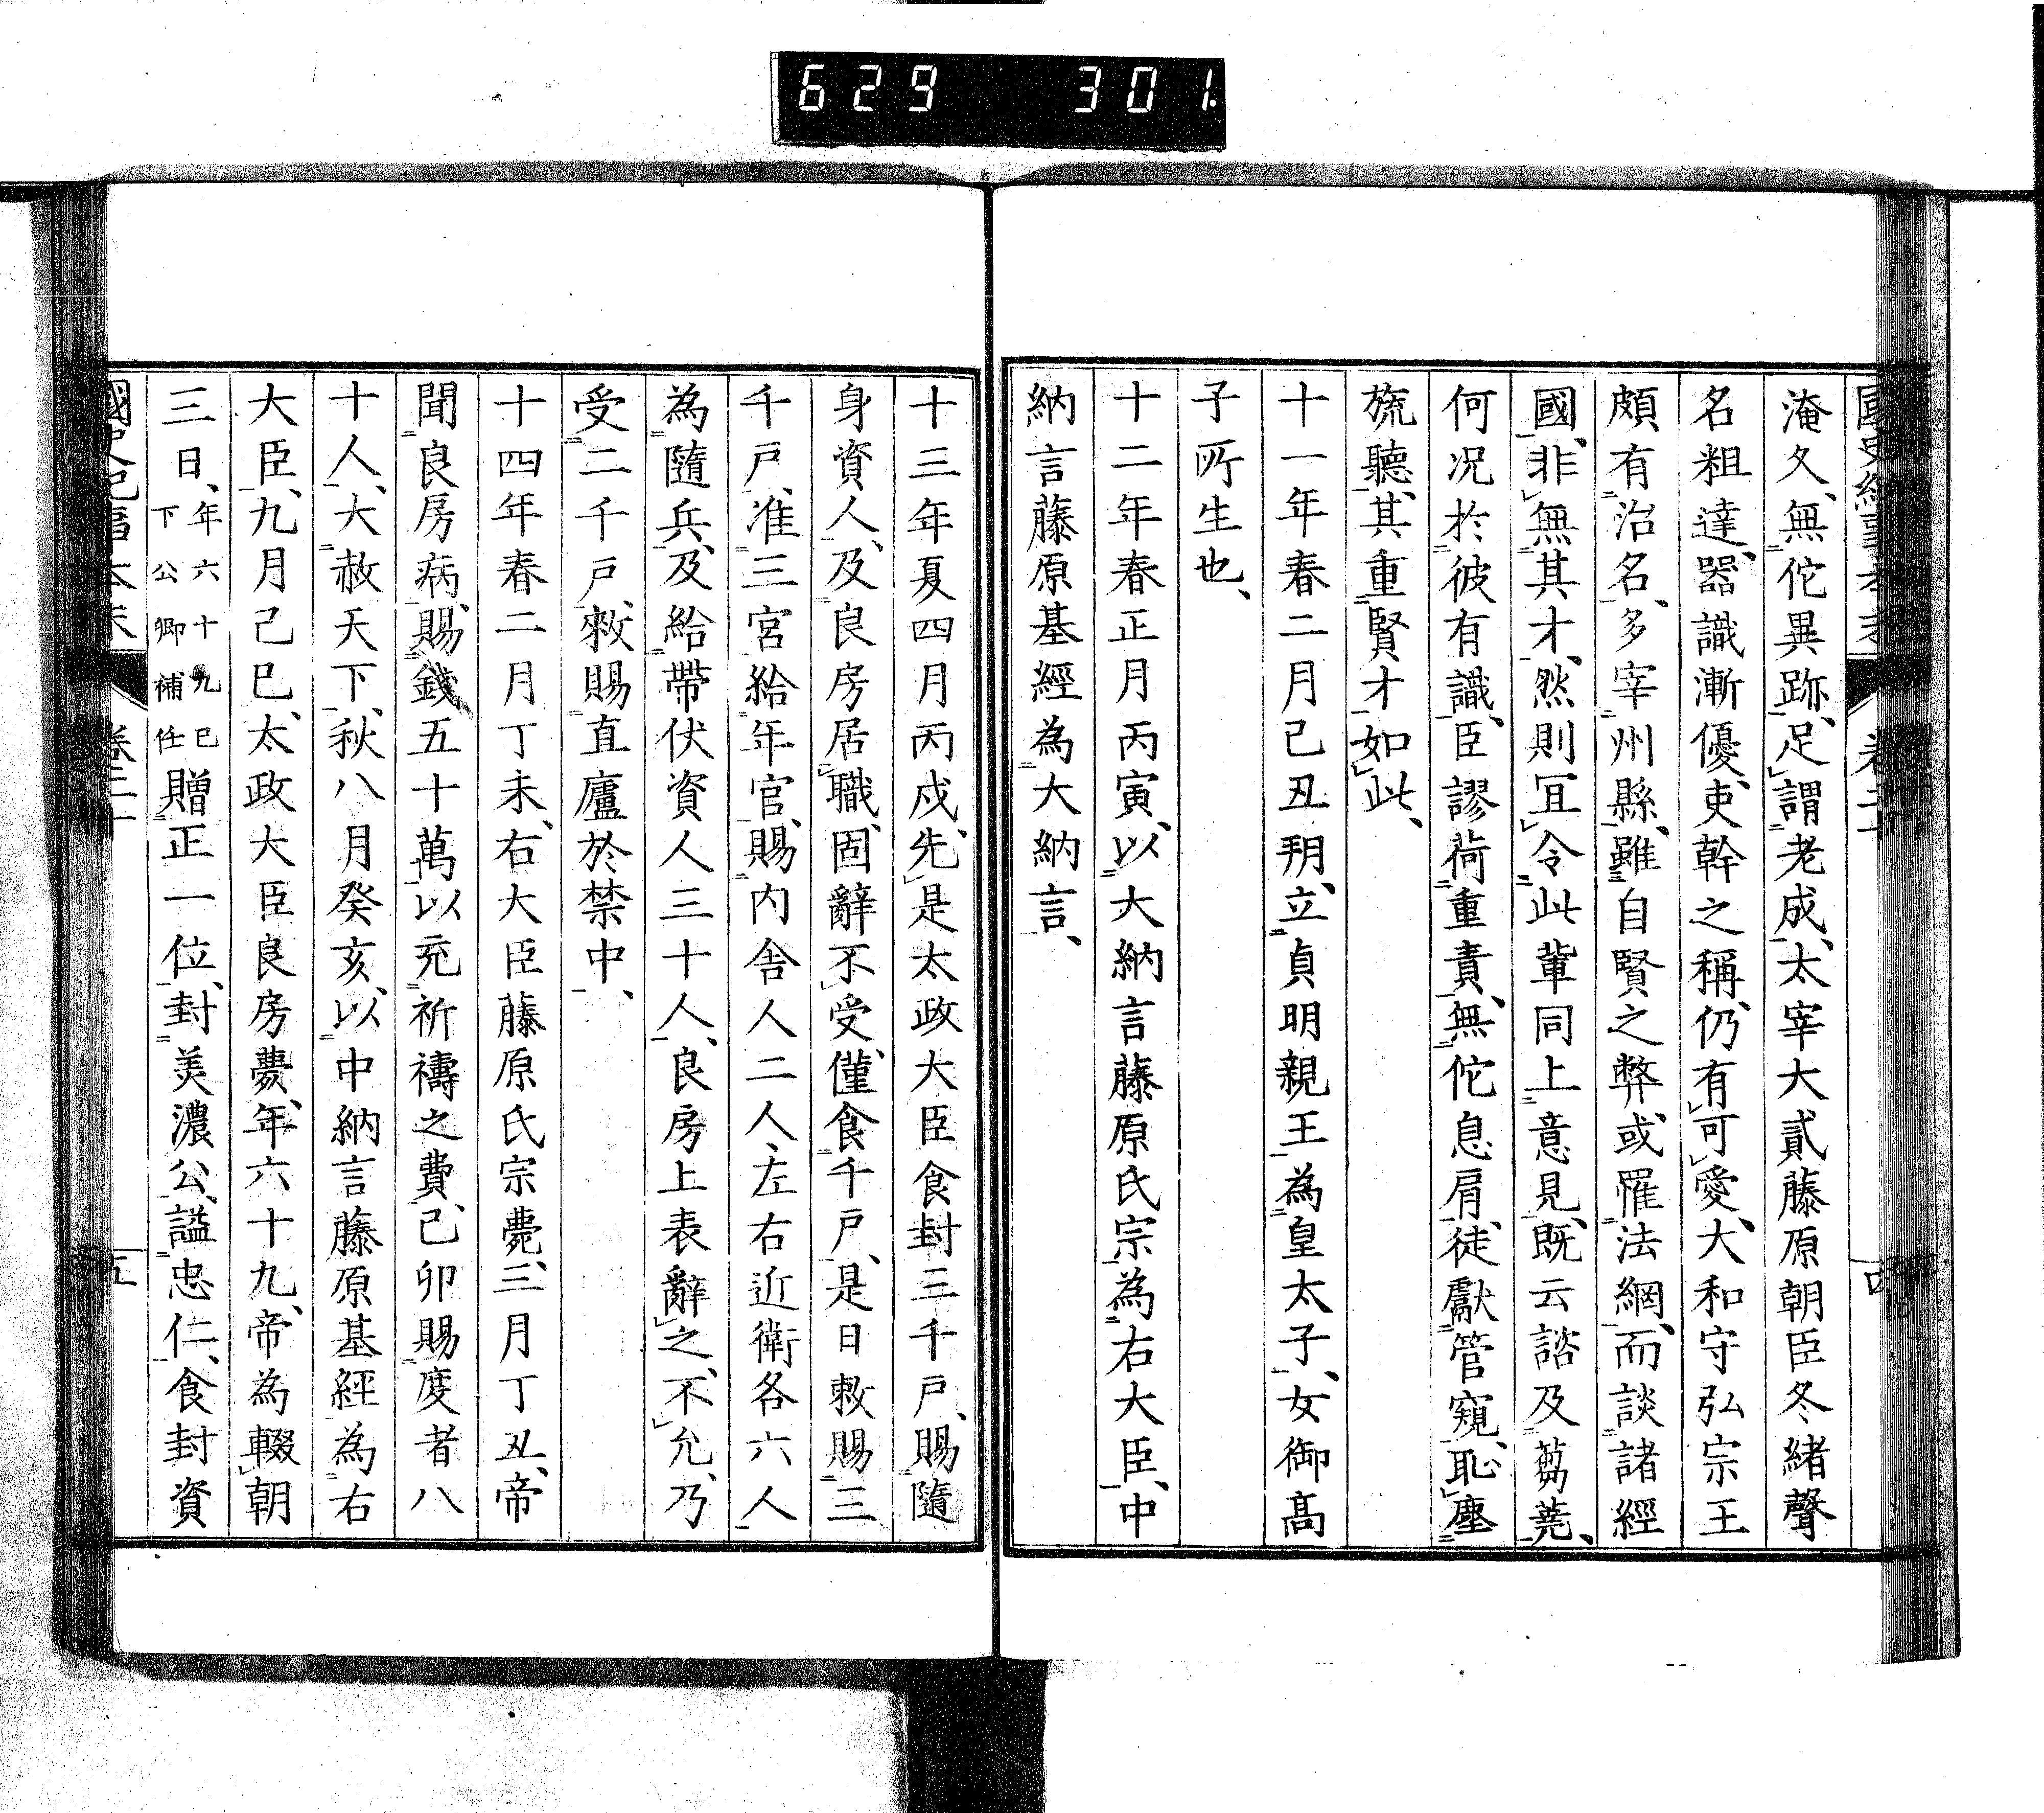 629 301
國史紀事本末 卷二十
淹久、無佗異跡、足謂老成、太宰大貳藤原朝臣冬緒聲
名粗達、器識漸優、吏幹之稱、仍有可愛、大和守弘宗王
頗有治名、多宰州縣、雖自賢之弊、或罹法網、而談諸經
國、非無其才、然則冝令此輩同上意見、既云諮及蒭蕘、
何况於彼有識、臣謬荷重責、無佗息肩、徒獻管窺、恥塵
旒聽、其重賢才如此、
十一年春二月己丑朔、立貞明親王為皇太子、女御高
子所生也、
十二年春正月丙寅、以大納言藤原氏宗為右大臣、中
納言藤原基經為大納言、
十三年夏四月丙戍、先是太政大臣食封三千戸、賜隨
身資人、及良房居職、固辭不受、僅食千戸、是日敕賜三
千戸、准三宮給年官、賜內舎人二人、左右近衛各六人
為隨兵、及給帶仗資人三十人、良房上表辭之、不允、乃
受二千戸、敕賜直廬於禁中、
十四年春二月丁未、右大臣藤原氏宗薨、三月丁丑、帝
聞良房病、賜錢五十萬、以充祈禱之費、己卯賜度者八
十人、大赦天下、秋八月癸亥、以中納言藤原基經為右
大臣、九月己巳、太政大臣良房薨、年六十九、帝為輟朝
三日、年六十九已下公卿補任贈正一位、封美濃公、謚忠仁、食封資
國史紀事本末 卷二十